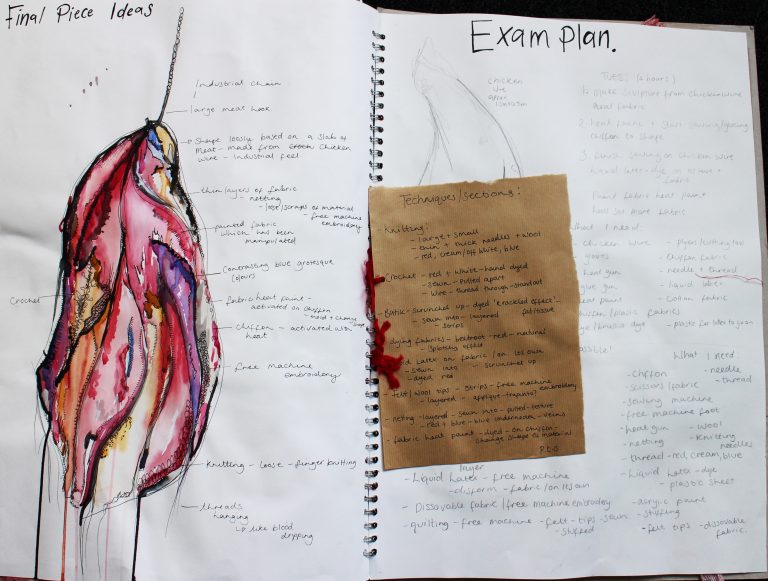 Final Piece Ideas
Industrial chain
large meat hook
Shape loosely based on a slab of
meat - made from chicken
wire - Industrial feel
thin layers of fabric
- netting
- lose/scraps of material
- free machine
embroidery
painted fabric
which has been
manipulated
Contrasting blue grotesque
colours
Crochet
fabric heat paint -
activated on chiffon
chiffon - activated with
heat
free machine
embroidery
Knitting - loose - finger knitting
threads
hanging
↳ like blood
dripping
Exam Plan.
chicken
wire
TUES: (2 hours)
1. Make sculpture from chicken wire
and fabric
2. heat paint + start sewing/glueing
chiffon to shape
3. finish sewing on chicken wire
liquid latex - dye
fabric
Paint fabric heat paint
What I need:
- chicken wire
- pliers/cutting tool
- gloves
- chiffon fabric
- heat gun
- needle + thread
- glue gun
- liquid latex
- heat paint
- cotton fabric
- chiffon/plastic fabric
Techniques/sections:
- Knitting:
- large + small
- thin + thick needles + wool
- red, cream/off white, blue
- Crochet - red + white - hand dyed
- sewn - pulled apart
- wire - thread through - standout
- Batik - scrunched up - dyed 'krackled effect'
- sewn into - layered fat/tissue
- strips
- dying fabrics - beetroot - red - natural
- splotchy effect
Latex on fabric / on its own
- sewn into - scrunched up
- dyed red
- felt/wool tips - strips - free machine
embroidery
- layered - applique - trapunto
- netting - layered - sewn into - pulled - texture
- red + blue - blue underneath - veins
- fabric heat paint - dyed - on chiffon -
change shape of material
P.T.O
What I need:
- chiffon
- needle
- scissors/fabric
- thread
- sewing machine
- free machine foot
- heat gun
- wool
- netting
- Knitting
needles
- thread - red, cream, blue
- Liquid Latex - dye
- plastic sheet
- acrylic paint
- stuffing
- felt tips
- dissovable
fabric.
layer
- Liquid Latex - free machine
- disform - fabric/on its own
- Dissovable fabric / free machine embroidery
- quilting - free machine - felt - tips - sewn
- stuffed